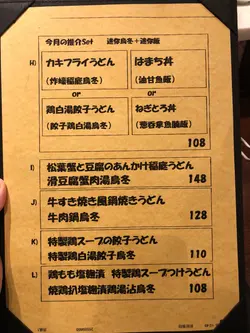 今月の推介Set 迷你烏冬＋迷你飯
H) カキフライうどん
(炸蠔稲庭烏冬)
はまち丼
(油甘魚飯)
or
or
鶏白湯餃子うどん
(餃子鶏白湯烏冬)
ねぎとろ丼
(葱吞拿魚腩飯)
108
I) 松葉蟹と豆腐のあんかけ稲庭うどん
滑豆腐蟹肉湯烏冬 148
J) 牛すき焼き風鍋焼きうどん
牛肉鍋烏冬 128
K) 特製鶏スープの餃子うどん
特製鶏白湯餃子烏冬 110
L) 鶏もも塩麹漬 特製鶏スープつけうどん
焼鶏扒塩麹漬鶏湯沾烏冬 108